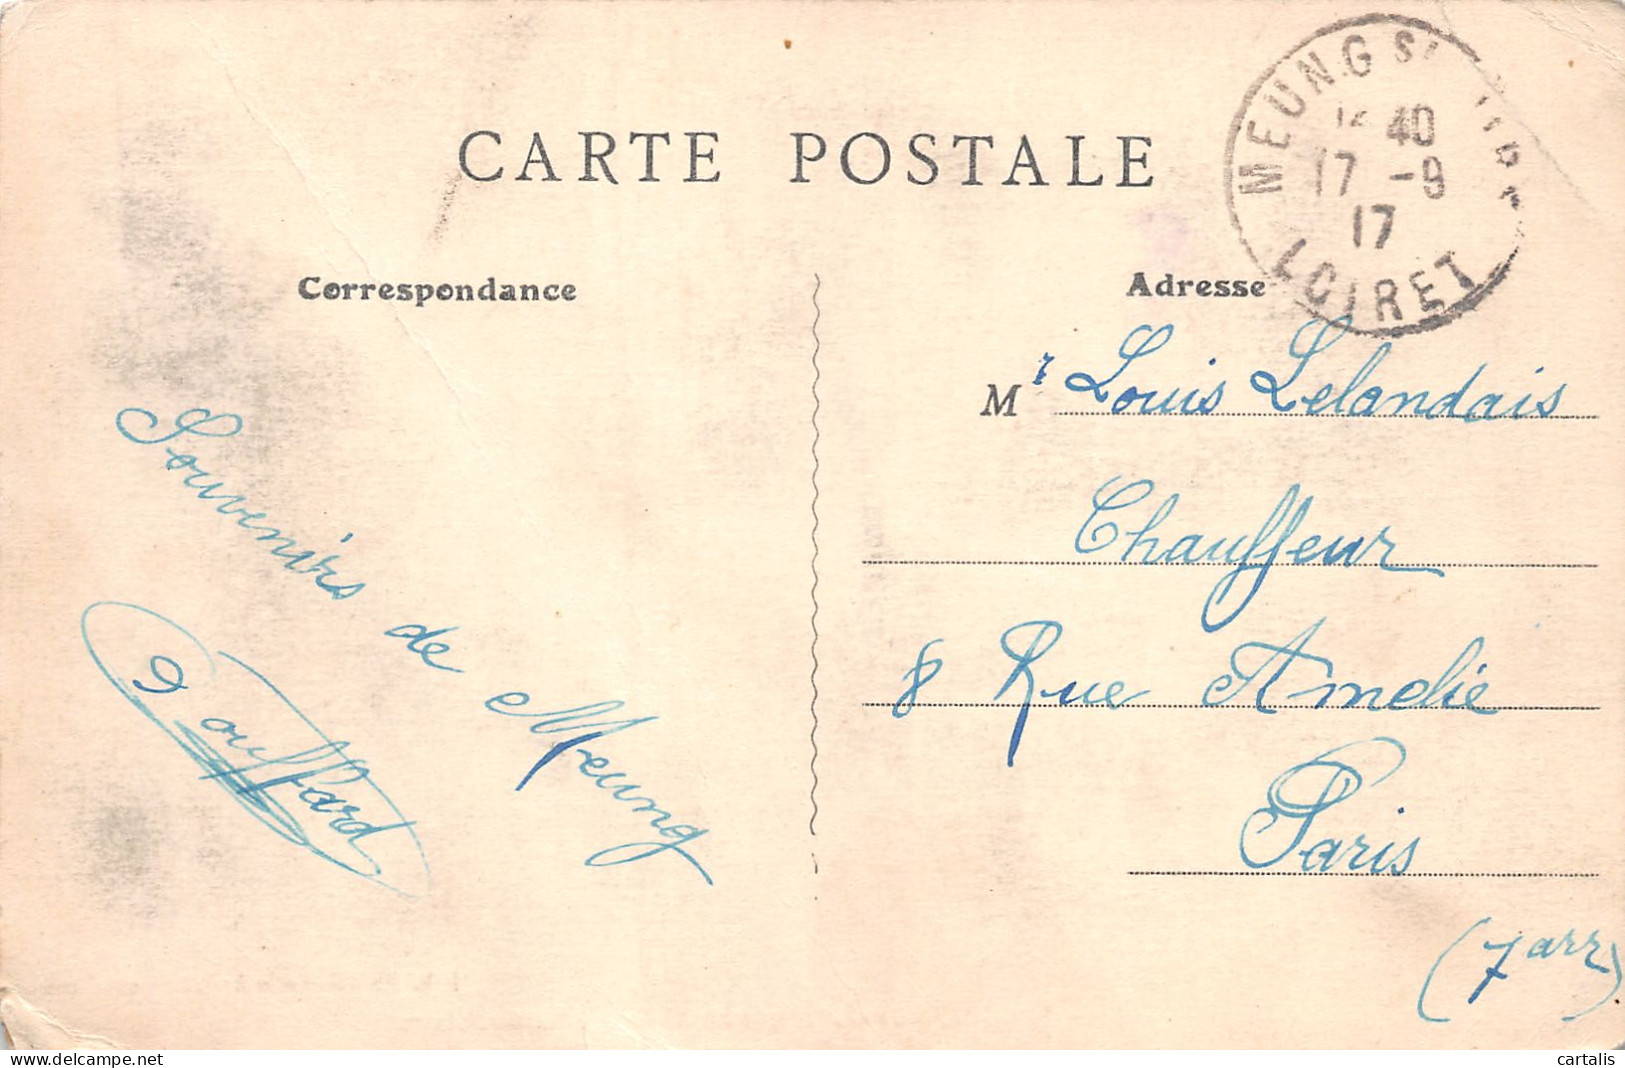 CARTE POSTALE
MEUNG S
40
17 -9
17
LOIRET
Correspondance
Adresse
Souvenirs de Meung
Mr Louis Lelandais
Chauffeur
8 Rue Amelie
Paris
(7 arr)
delcampe.net
cartalis